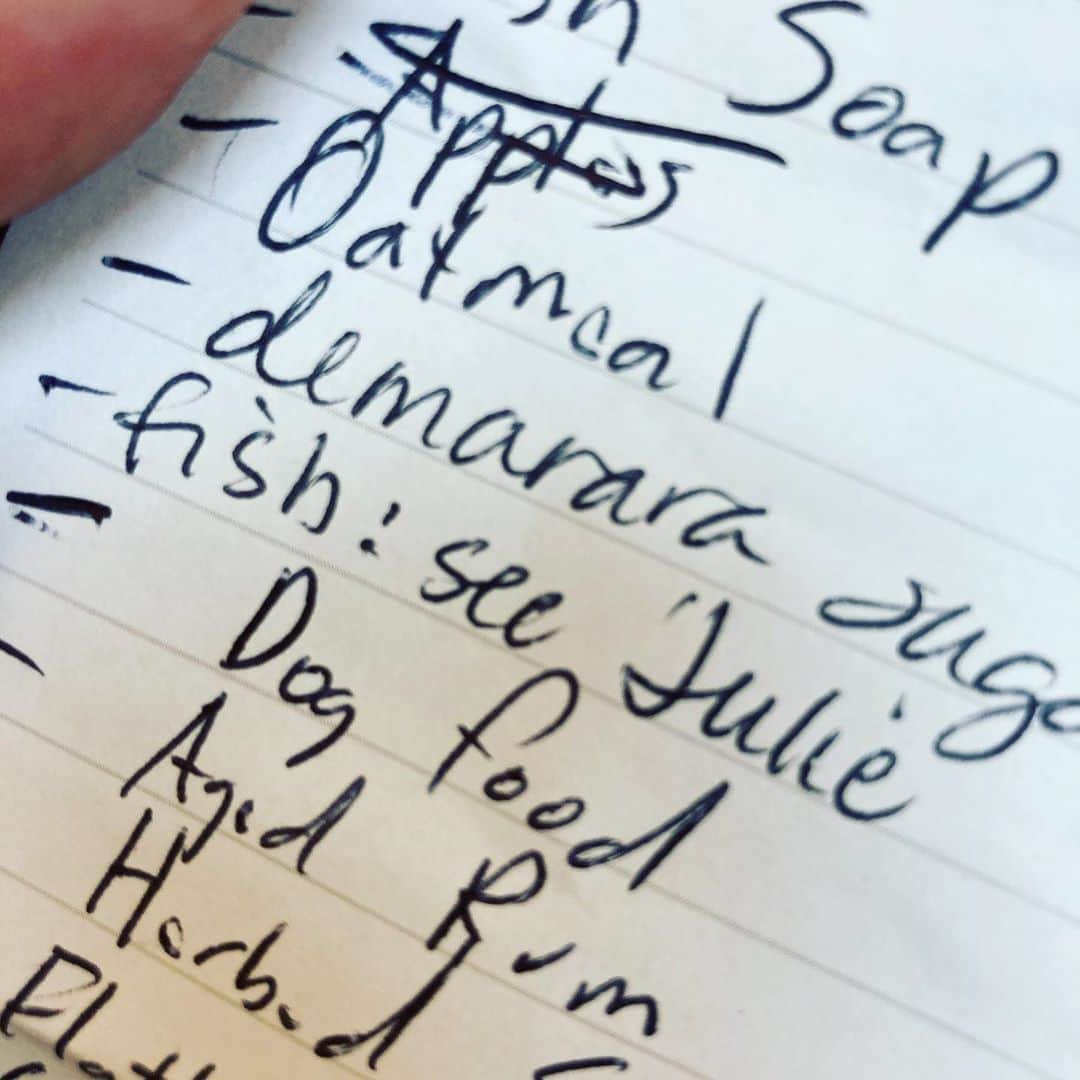 Soap
Apples
Oatmeal
demarara suga
fish: see Julie
Dog food
Aged Rum
Herbed